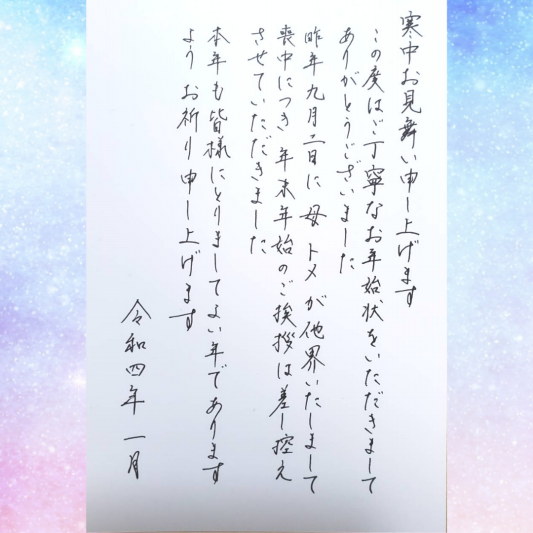 寒中お見舞い申し上げます
この度はご丁寧なお年始状をいただきまして
ありがとうございました
昨年九月二日に 母 トメが他界いたしまして
喪中につき 年末年始のご挨拶は差し控え
させていただきました
本年も皆様にとりましてよい年であります
よう お祈り申し上げます
令和四年 一月